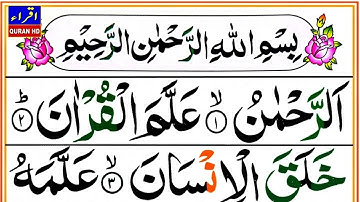 اقراء
QURAN HD
بِسْمِ اللهِ الرَّحْمٰنِ الرَّحِيْمِ
اَلرَّحْمٰنُ ۙ﴿۱﴾ عَلَّمَ الْقُرْاٰنَ ؕ﴿۲﴾
خَلَقَ الْاِنْسَانَ ۙ﴿۳﴾ عَلَّمَهُ